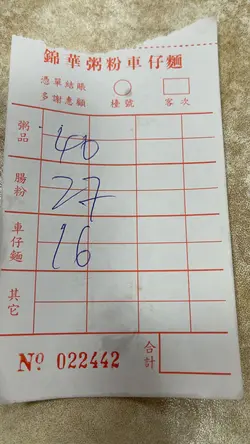 錦華粥粉車仔麵
憑單結賬
多謝惠顧
檯號
客次
粥品
40
腸粉
27
車仔麵
16
其它
Nº 022442
合計